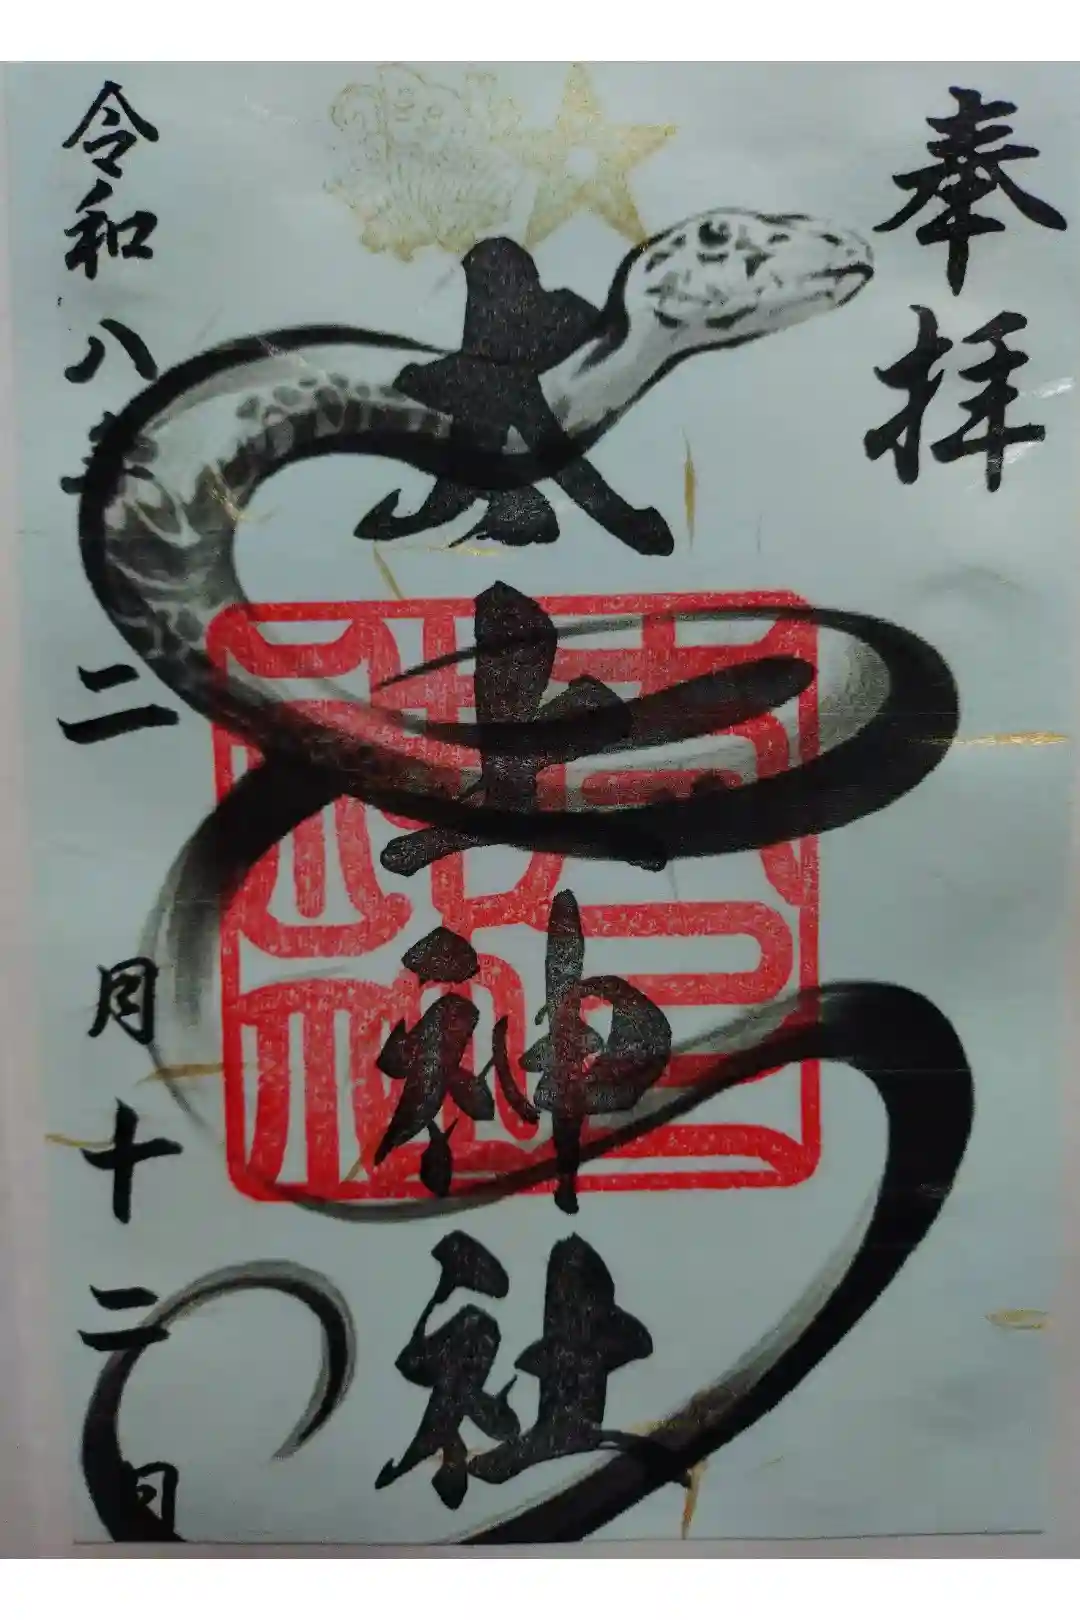 奉拝
上神社
令和八年二月十二日